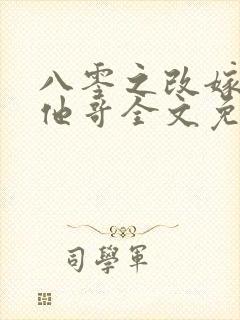 八零之改嫁
他哥全文免
司學軍